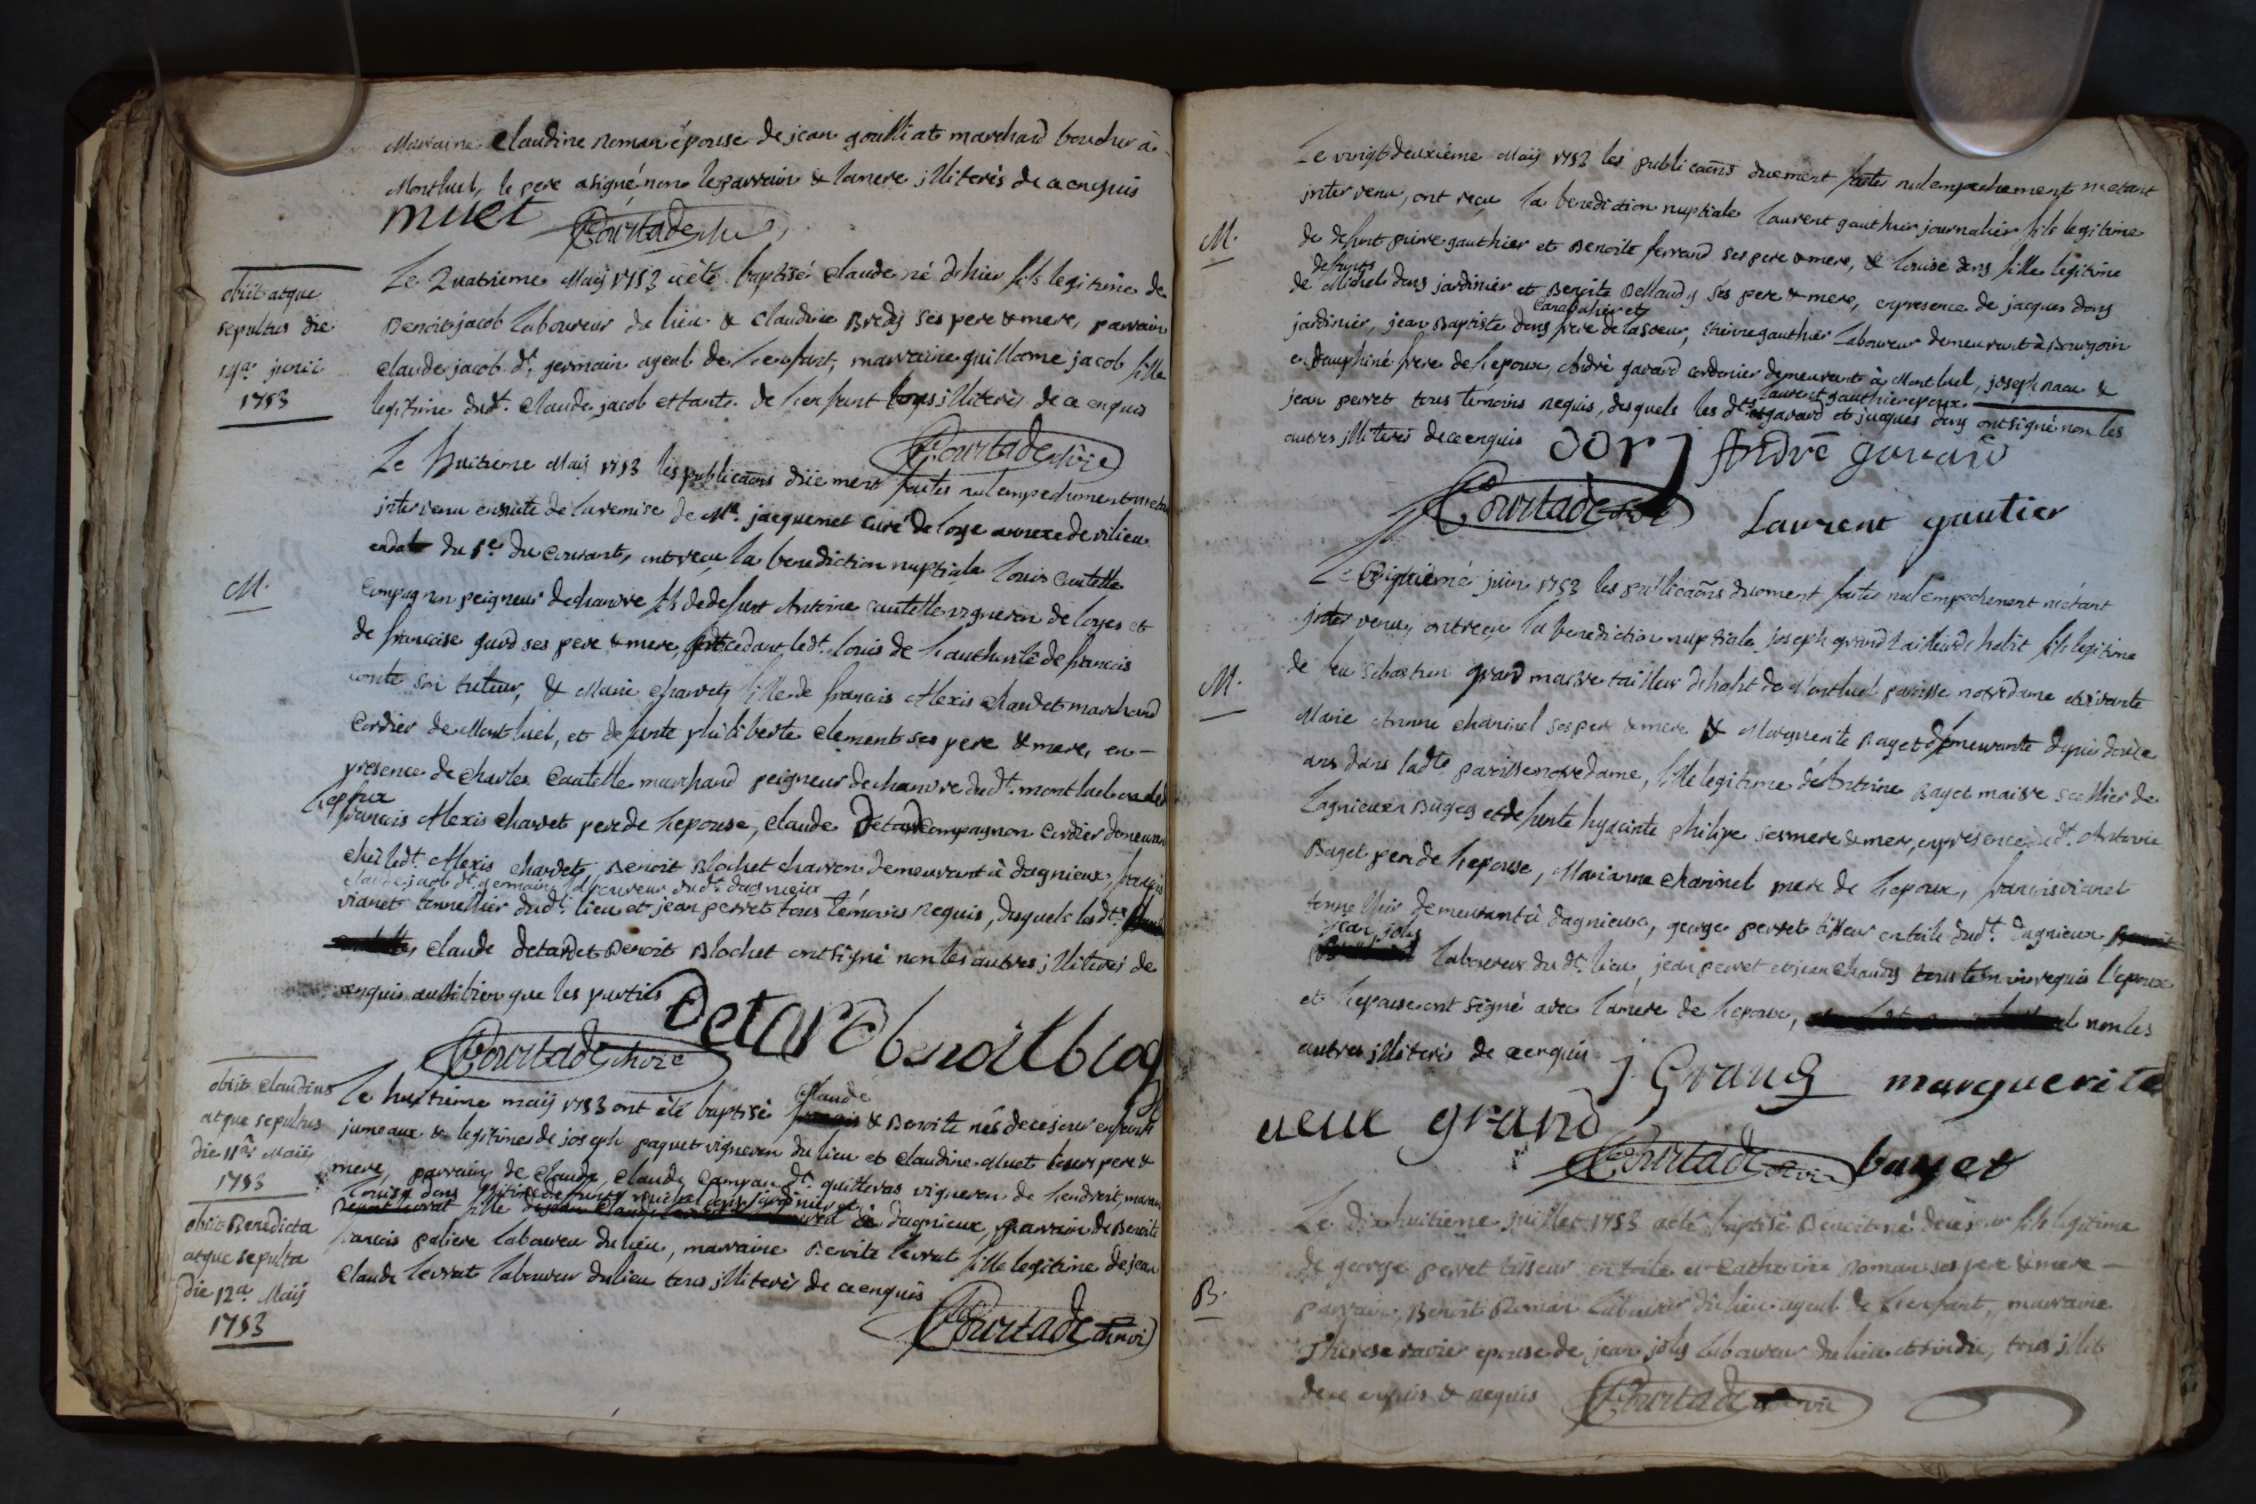 Marraine Claudine Roman épouse de jean gouilliat marchand boucher à
Montluel, le pere a signé non le parrain & la mere illiterés de ce enquis
muet Courtade
obiit atque
sepultus die
junii
1753
Le Quatrieme Maij 1753 a été baptisé claude né d'hier fils legitime de
Benoit jacob laboureur du lieu & claudine Bredy ses pere & mere, parrain
claude jacob dt. germain ayeul de l'enfant, marraine guillome jacob fille
legitime dudt. Claude jacob et tante de l'enfant tous illiterés de ce enquis
Courtade vic
M.
Le huitieme Maij 1753 les publicaõns düement faites nul empechement
intervenu ensuite de la remise de Mr. jacquemet curé de loye annexe de vilieu
en date du 1er du courant, ont reçu la benediction nuptiale Louis Cautelle
compagnon peigneur de chanvre fils de defunt Antoine cautelle vigneron de loyes et
de francoise gard ses pere & mere procedant ledt. louis de l'authorité de francois
conte son tuteur, & Marie Charvet fille de francois Alexis Chardet marchand
Cordier de Montluel, et defunte philiberte clement ses pere & mere, en
presence de charles Cautelle marchand peigneur de chanvre dudt. montluel
l'epoux
francois Alexis Charvet pere de l'epouse, claude Detard compagnon Cordier demeurant
chez ledt. Alexis chardet, Benoit Blochet charron demeurant à dagnieux, francois
claude jacob dt. germain laboureur dudt. dagnieux
vianet tonnellier dudt. lieu et jean perret tous témoins requis, desquels les dts.
claude detard et Benoit Blochet ont signé non les autres illiterés de
ce enquis aussi bien que les parties
Detard benoit bloc
Courtade vic
obiit claudius
atque sepultus
die 11a Maii
1753
obiit Benedicta
atque sepulta
die 12a Maij
1753
Claude
Le huitieme maij 1753 ont été baptisé & Benoite nés de ce jour enfants
jumeaux & legitimes de joseph paquet vigneron du lieu et claudine Muet leurs pere &
mere, parrain de claude, claude Campan dt. quitteras vigneron de l'endroit, marraine
Louise dons
fille de dagnieux, parrain de Benoite
francois paliere laboureur du lieu, marraine Benoite levrat fille legitime de jean
Claude levrat laboureur du lieu tous illiterés de ce enquis
Courtade
M.
Le vingt deuxième Maij 1753 les publicaõns duement faites nul empechement n'etant
intervenu, ont reçu la benediction nuptiale laurent gauthier journalier fils legitime
de defunt pierre gauthier et Benoite ferrand ses pere & mere, & louise dons fille legitime
defunts
de Michel dons jardinier et Benoite Bellandy ses pere & mere, en presence de jacques dons
jardinier, jean Baptiste dons frere de la soeur, Etienne gauthier laboureur demeurant à Bourgoin
en dauphiné frere de l'epoux, André gavard cordonier demeurant à Montluel, joseph &
laurent gauthier epoux
jean perret tous témoins requis, desquels les dts. gavard et jacques dons ont signé non les
autres illiterés de ce enquis
dorj André gavard
Courtade
Laurent gautier
M.
juin 1753 les publicaõns duement faites nul empechement n'étant
intervenu, ont reçu la benediction nuptiale joseph grand tailleur d'habit fils legitime
de feu Sebastien grand maitre tailleur d'habit de Montluel paroisse notre dame et vivante
Marie Anne charinel ses pere & mere & Marguerite Bayet demeurante depuis douze
ans dans ladte paroisse notre dame, fille legitime de Antoine Bayet maitre Scellier de
lagnieu en Bugey et defunte hyacinte philipe ses mere & mere, en presence dudt. Antoine
Bayet pere de l'epouse, Marianne charinel mere de l'epoux, francois vianet
tonnellier demeurant à dagnieux, george perret tisseur en toile dudt. dagnieux
jean joly
laboureur du dt. lieu, jean perret et jean chaudy tous temoins requis l'epoux
et l'epouse ont signé avec la mere de l'epoux, non les
autres illiterés de ce enquis
j. Grand marguerite
grand
Courtade bayet
B.
Le dixhuitième juillet 1753 a été baptisé Benoit né de ce jour fils legitime
de george perret tisseur en toile et catherine Roman ses pere & mere
parrain, Benoit Roman laboureur du lieu ayeul de l'enfant, marraine
Therese ravier epouse de jean joly laboureur du lieu et sindic, tous illit
de ce enquis & requis Courtade